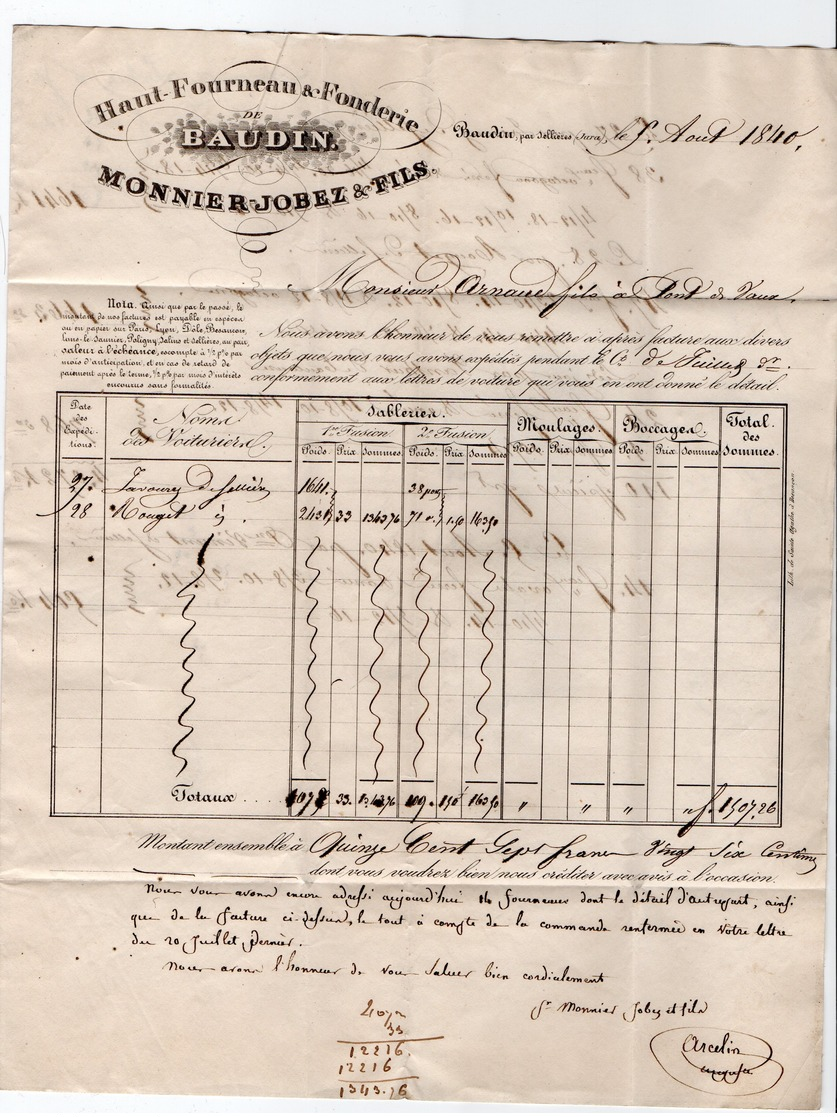 Haut-Fourneau & Fonderie
DE
BAUDIN.
MONNIER-JOBEZ & FILS.
Baudin, par Sellières (Jura), le 5. Aout 1840.
Monsieur Arnaud fils à Pont de Vaux.
Nota. Ainsi que par le passé, le
montant de nos factures est payable en espèces
ou en papier sur Paris, Lyon, Dôle, Besançon,
Lons-le-Saunier, Poligny, Salins et Sellières, au pair,
valeur à l'échéance, escompte à ½ p% par
mois d'anticipation, et en cas de retard de
paiement après le terme, ½ p% par mois d'intérêts
encourus sans formalités.
Nous avons l'honneur de vous remettre ci après facture aux divers
objets que nous vous avons expédiés pendant le Ct. de Juillet dr.
conformément aux lettres de voiture qui vous en ont donné le détail.
Date des Expéditions. Noms des Voituriers. Sableries. Moulages. Boccages. Total des Sommes.
1re Fusion. 2e Fusion.
Poids. Prix Sommes. Poids. Prix Sommes Poids. Prix Sommes Poids. Prix Sommes
27. de Sellières 1641. 38
28 Rouget id. 2431 33 1343 76 71 1.50 163 50
Totaux .... 4072 33. 1343 76 109 150 163 50 " " " " f. 1507,26
Montant ensemble à Quinze Cent Sept francs Vingt Six Centimes
dont vous voudrez bien nous créditer avec avis à l'occasion.
Nous vous avons encore adressé aujourd'hui 14 fourneaux dont le détail d'autrepart, ainsi
que de la facture ci-dessus, le tout à compte de la commande renfermée en votre lettre
du 20 Juillet dernier.
Nous avons l'honneur de vous saluer bien cordialement
Pr Monnier Jobez et fils
Arcelin
4072
33
12216.
12216
1343.76
Lith. de Sainte Agathe à Besançon.